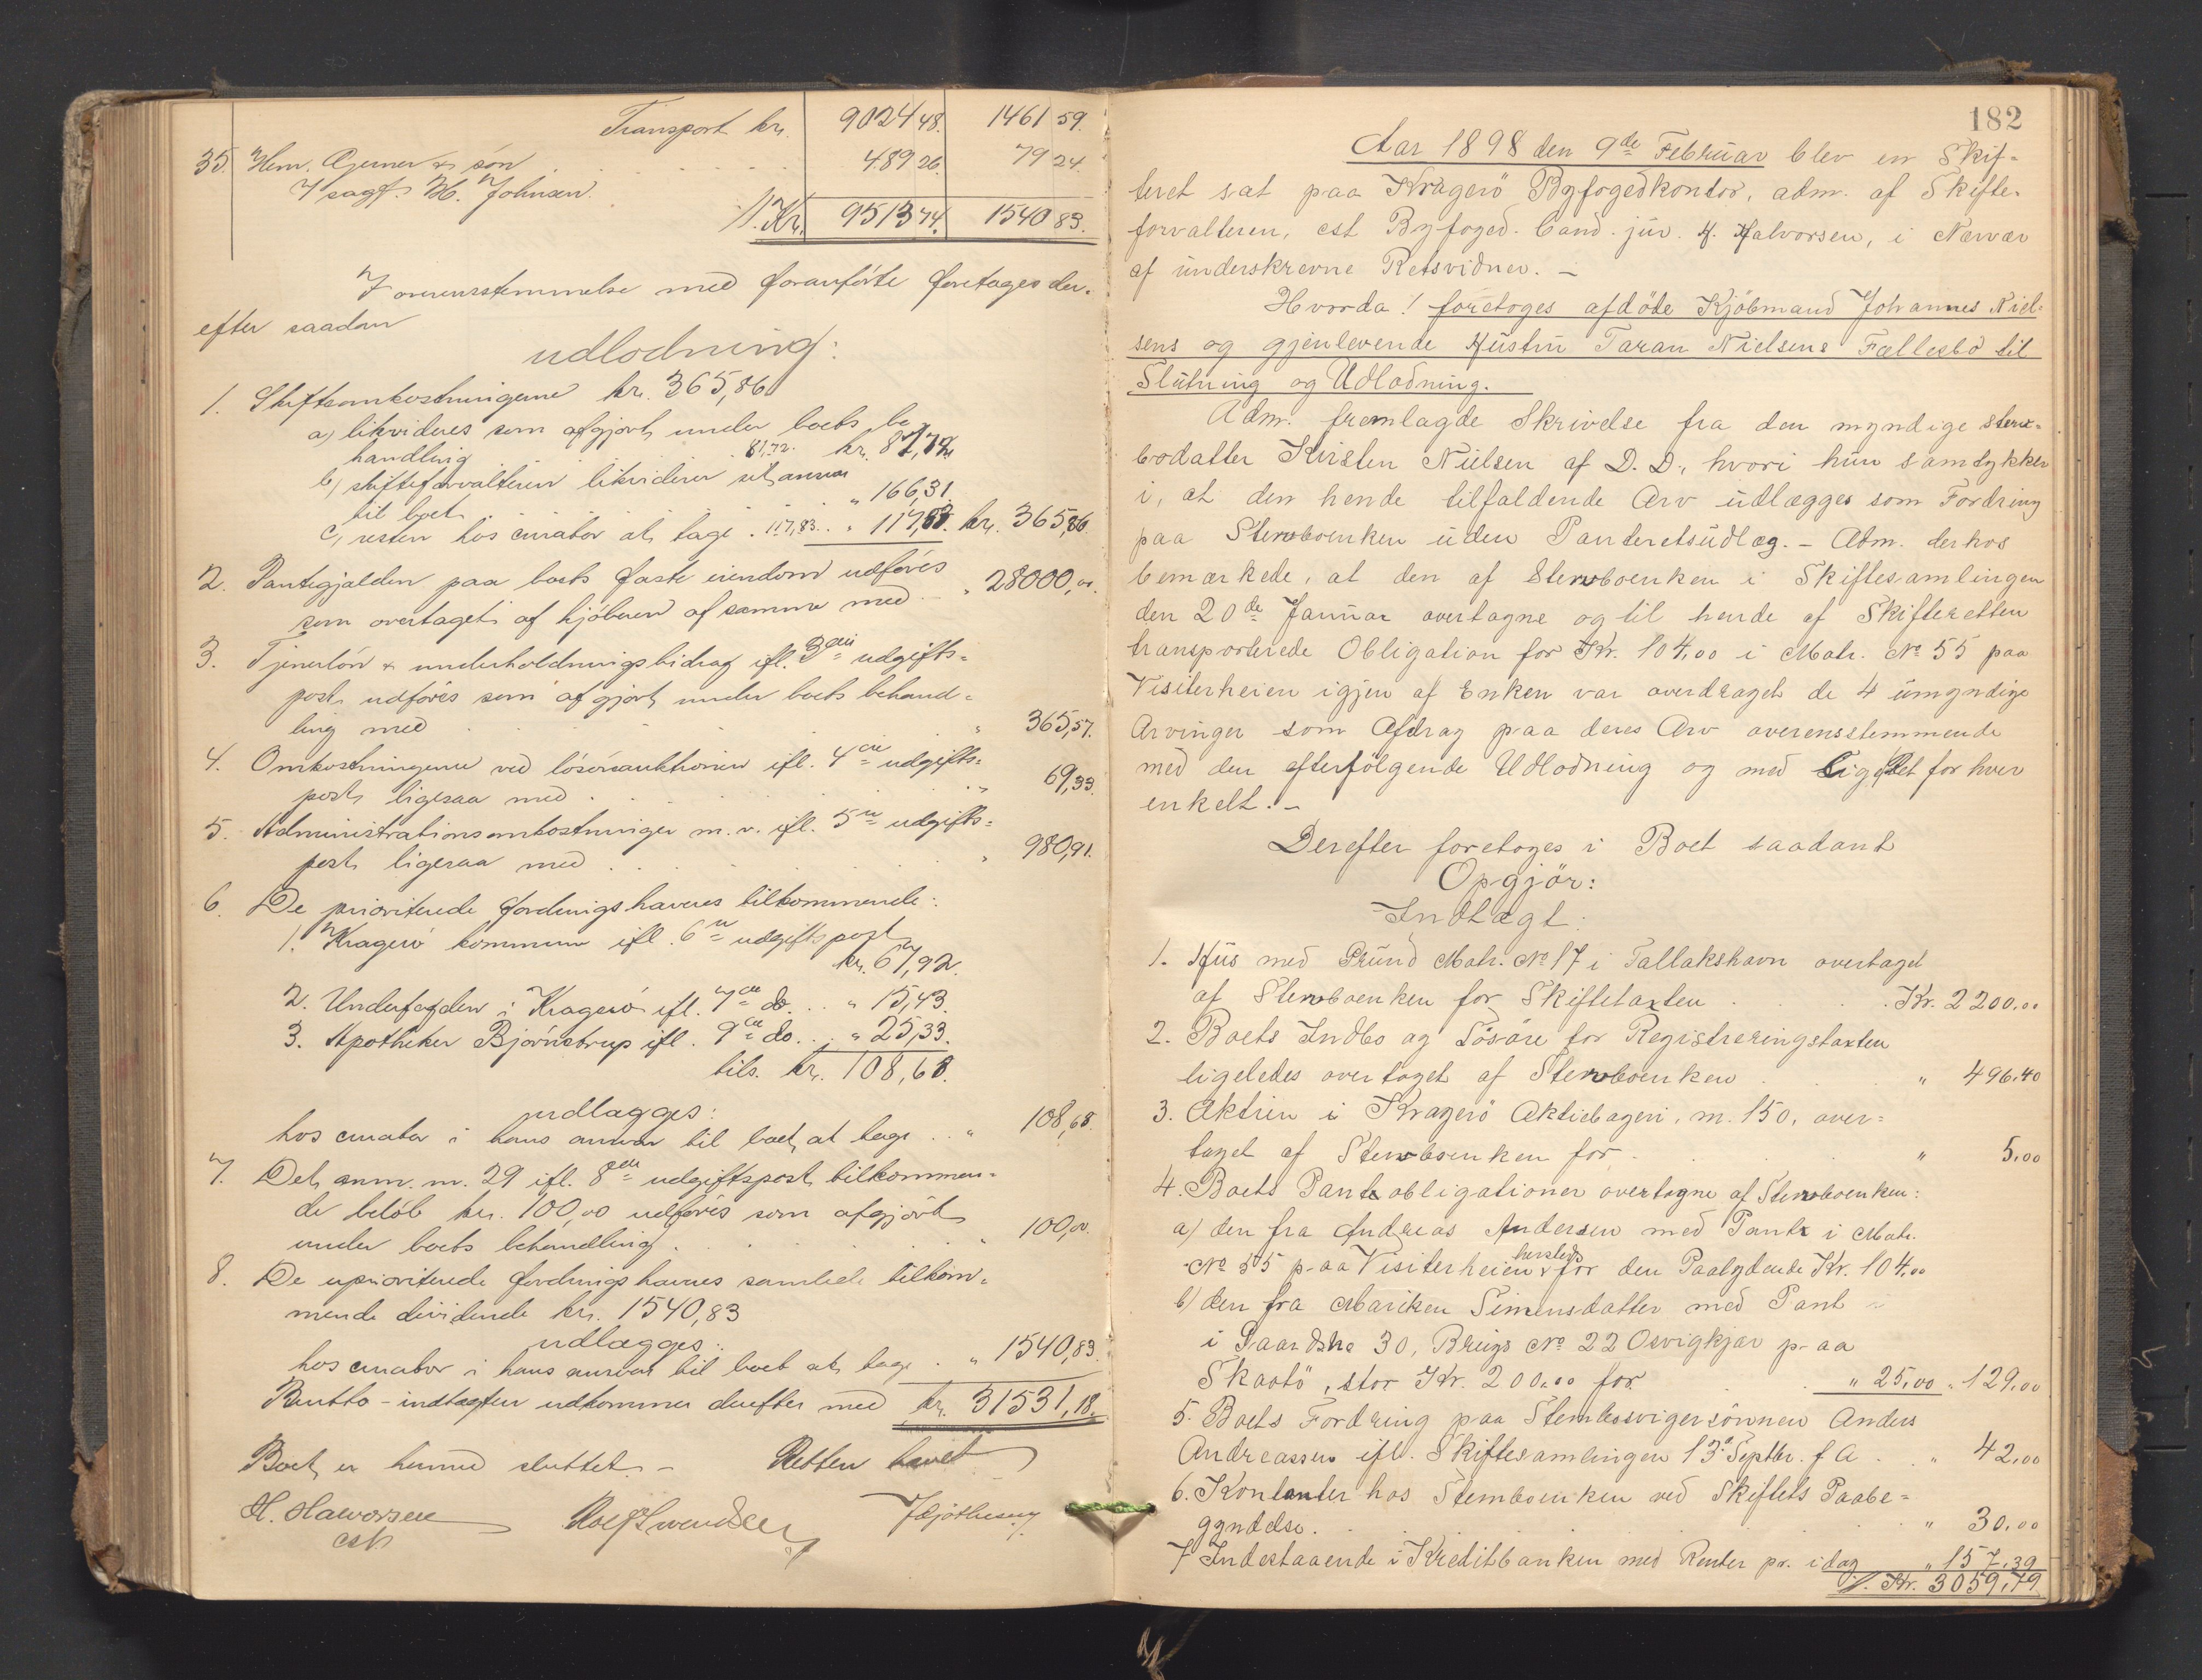 Transport kr. 9024 48. 1461 59.
35. Hem. Gjerner & søn . . . . . . 489 26. 79 24.
v/ sagf. H. Johnsen.
/. Kr. 9513 74. 1540 83.
I overensstemmelse med foranførte foretages der-
efter saadan
udlodning:
1. Skifteomkostningerne kr. 365,86
a) likvideres som afgjort under boets be-
handling . . 81,72. kr. 81,72
b) skifteforvalteren likviderer sit ansvar
til boet . . . . „ 166,31.
c, resten hos curator at tage . 117,83. . „ 117,83. kr. 365,86.
2. Pantegjælden paa boets faste eiendom udføres
som overtaget af kjøberen af samme med . „ 28000,00.
3. Tjenerløn & underholdningsbidrag ifl. 3die udgifts=
post, udføres som afgjort under boets behand=
ling med . . . . . . „ 365,57.
4. Omkostningerne ved løsøreauktionen ifl. 4de udgifts=
post ligesaa med . . . . . „ 69,33.
5. Administrationsomkostninger m. v. ifl. 5te udgifts=
post ligesaa med . . . . . „ 980,91.
6. De prioriterede fordringshaveres tilkommende:
1. Kragerø kommune ifl. 6te udgiftspost
kr. 67,92.
2. Underfogden i Kragerø ifl. 7de do . . „ 15,43.
3. Apotheker Bjørnstrup ifl. 9de do . . „ 25,33.
tils. kr. 108,68.
udlægges:
hos curator i hans ansvar til boet at tage . . „ 108,68.
7. Det anm. nr. 29 ifl. 8de udgiftspost tilkommen=
de beløb kr. 100,00 udføres som afgjort
under boets behandling . . . . „ 100,00.
8. De uprioriterede fordringshaveres samlede tilkom=
mende dividende kr. 1540,83
udlægges:
hos curator i hans ansvar til boet at tage . „ 1540,83.
Brutto-indtægten udkommer derefter med kr. 31531,18.
Boet er hermed sluttet. - Retten hævet
H. Halvorsen
cst
182
Aar 1898 den 9de Februar blev en Skif-
teret sat paa Kragerö Byfogedkontor, adm. af Skifte-
forvalteren, cst Byfoged. Cand. jur. H. Halvorsen, i Nærvær
af underskrevne Retsvidner. -
Hvorda! foretoges afdöde Kjöbmand Johannes Niel-
sens og gjenlevende Hustru Taran Nielsens Fællesbo til
Slutning og Udlodning.
Adm. fremlagde Skrivelse fra den myndige Sterv-
bodatter Kirsten Nielsen af D. D., hvori hun samtykker
i, at den hende tilfaldende Arv udlægges som Fordring
paa Stervboenken uden Panteretsudlæg. - Adm. derhos
bemærkede, at den af Stervboenken i Skiftesamlingen
den 20de Januar overtagne og til hende af Skifteretten
transporterede Obligation for Kr. 104,00 i Matr. No 55 paa
Visiterheien igjen af Enken var overdraget de 4 umyndige
Arvinger som Afdrag paa deres Arv overensstemmende
med den efterfölgende Udlodning og med Ligget for hver
enkelt. -
Derefter foretoges i Boet saadant
Opgjör:
Indtægt.
1. Hus med Grund Matr. No 17 i Tallakshavn overtaget
af Stervboenken for Skiftetaxten . . . . Kr. 2200,00
2. Boets Indbo og Lösöre for Registreringstaxten
ligeledes overtaget af Stervboenken . . . „ 496,40
3. Aktien i Kragerö Aktiebageri, nr. 150, over=
taget af Stervboenken for . . . . „ 5,00
4. Boets Panteobligationer overtagne af Stervboenken:
a) den fra Andreas Andersen med Pant i Matr.
No 55 paa Visiterheien hersteds for den Paalydende Kr. 104,00
b) den fra Mariken Simensdatter med Pant
i Gaards No 30, Brugs No 22 Osvigkjær paa
Skaatö, stor Kr. 200,00 for . . „ 25,00 „ 129,00
5. Boets Fordring paa Stervbosvigersönnen Anders
Andreassen ifl. Skiftesamlingen 13de Septbr. f A . . „ 42,00
6. Kontanter hos Stervboenken ved Skiftets Paabe=
gyndelse . . . . . . „ 30,00
7 Indestaaende i Kreditbanken med Renter pr. idag „ 157,39
/. Kr. 3059,79